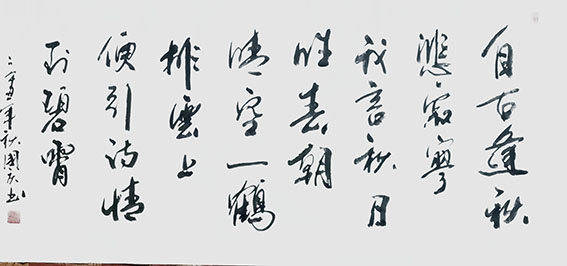 自古逢秋
悲寂寥
我言秋日
胜春朝
晴空一鶴
排雲上
便引诗情
到碧霄
年秋國书